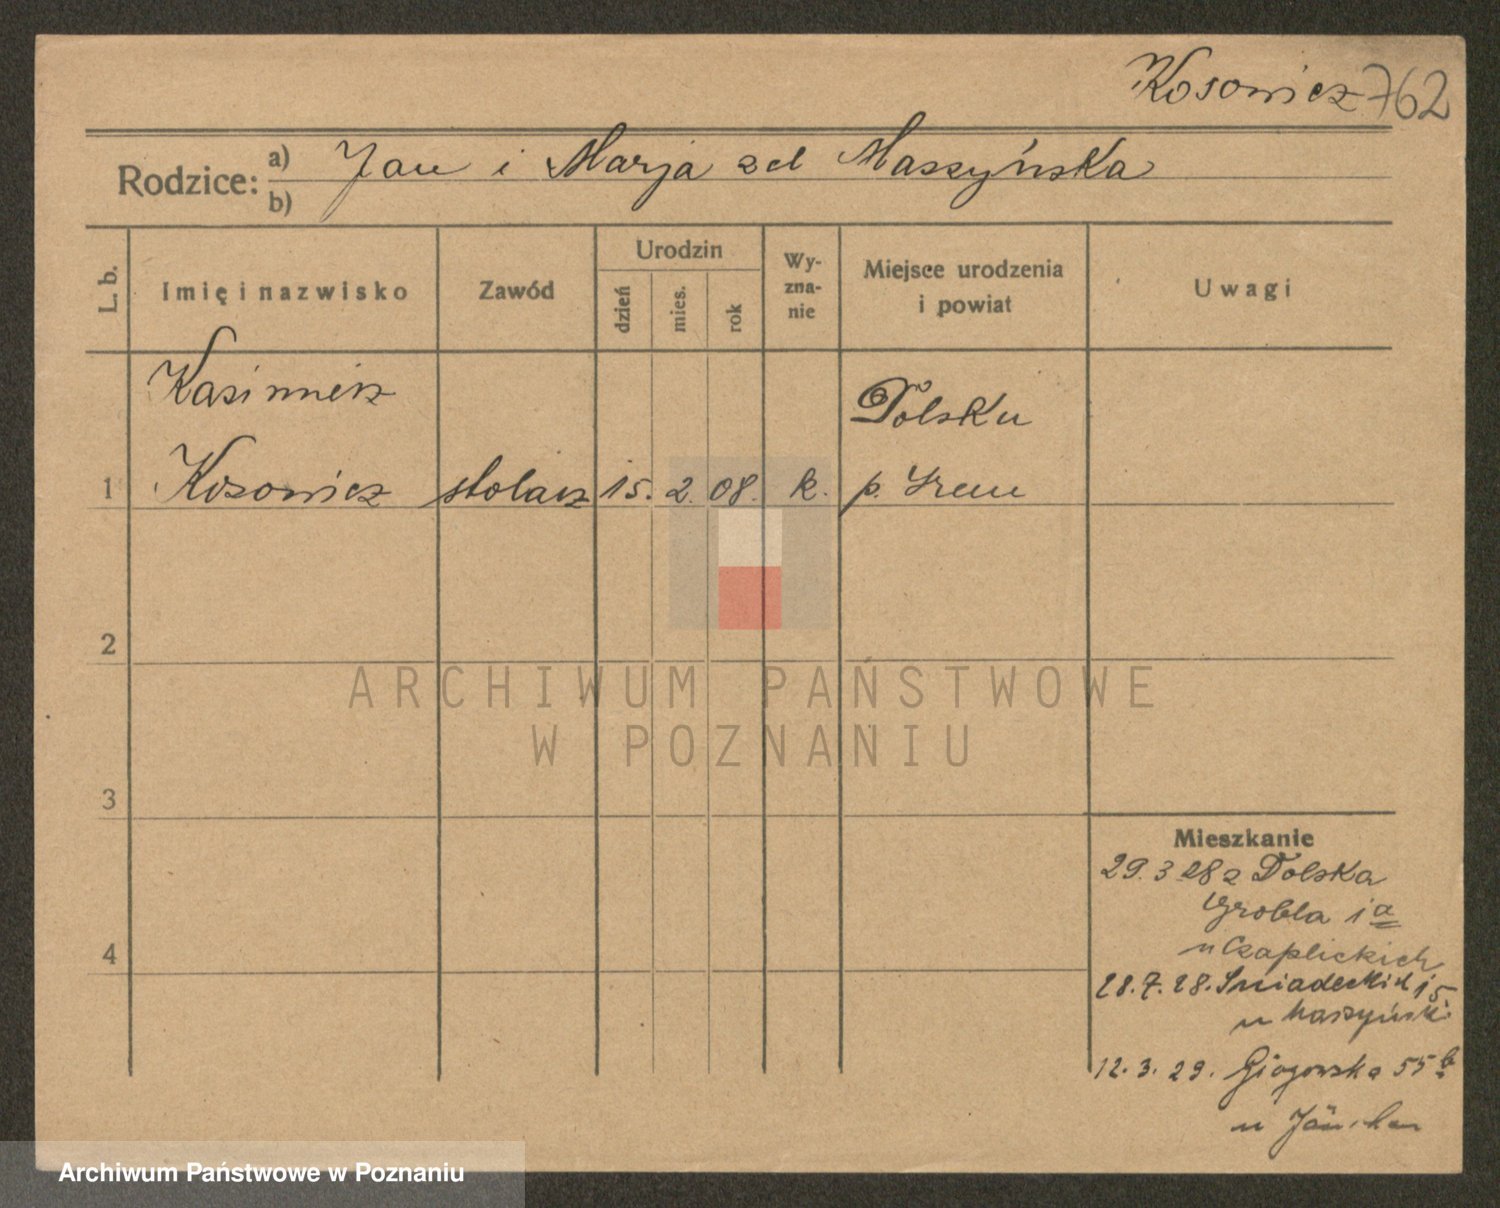 Kosowicz 762
Rodzice: a) Jan i Marja zd Maszyńska
b)
L. b. Imię i nazwisko Zawód Urodzin dzień mies. rok Wyznanie Miejsce urodzenia i powiat Uwagi
Kasimierz
Dolsku
1 Kosowicz stolarz 15. 2. 08. k. p. Srem
2
3
4
Mieszkanie
29.3 28 z Dolska
Grobla 1a
u Czaplickich
28.7.28. Sniadeckich 15.
u Maszyńsk.
12.3.29. Głogowska 55
u
ARCHIWUM PAŃSTWOWE
W POZNANIU
Archiwum Państwowe w Poznaniu